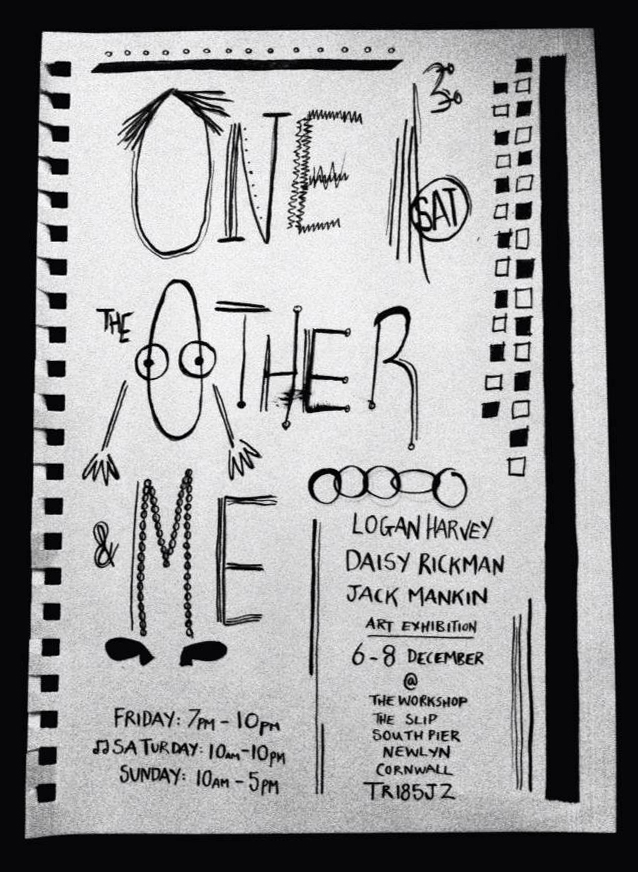 ONE
SAT
THE OTHER
& ME
LOGAN HARVEY
DAISY RICKMAN
JACK MANKIN
ART EXHIBITION
6-8 DECEMBER
@
THE WORKSHOP
THE SLIP
SOUTH PIER
NEWLYN
CORNWALL
TR185JZ
FRIDAY: 7PM - 10PM
♫ SATURDAY: 10AM-10PM
SUNDAY: 10AM - 5PM